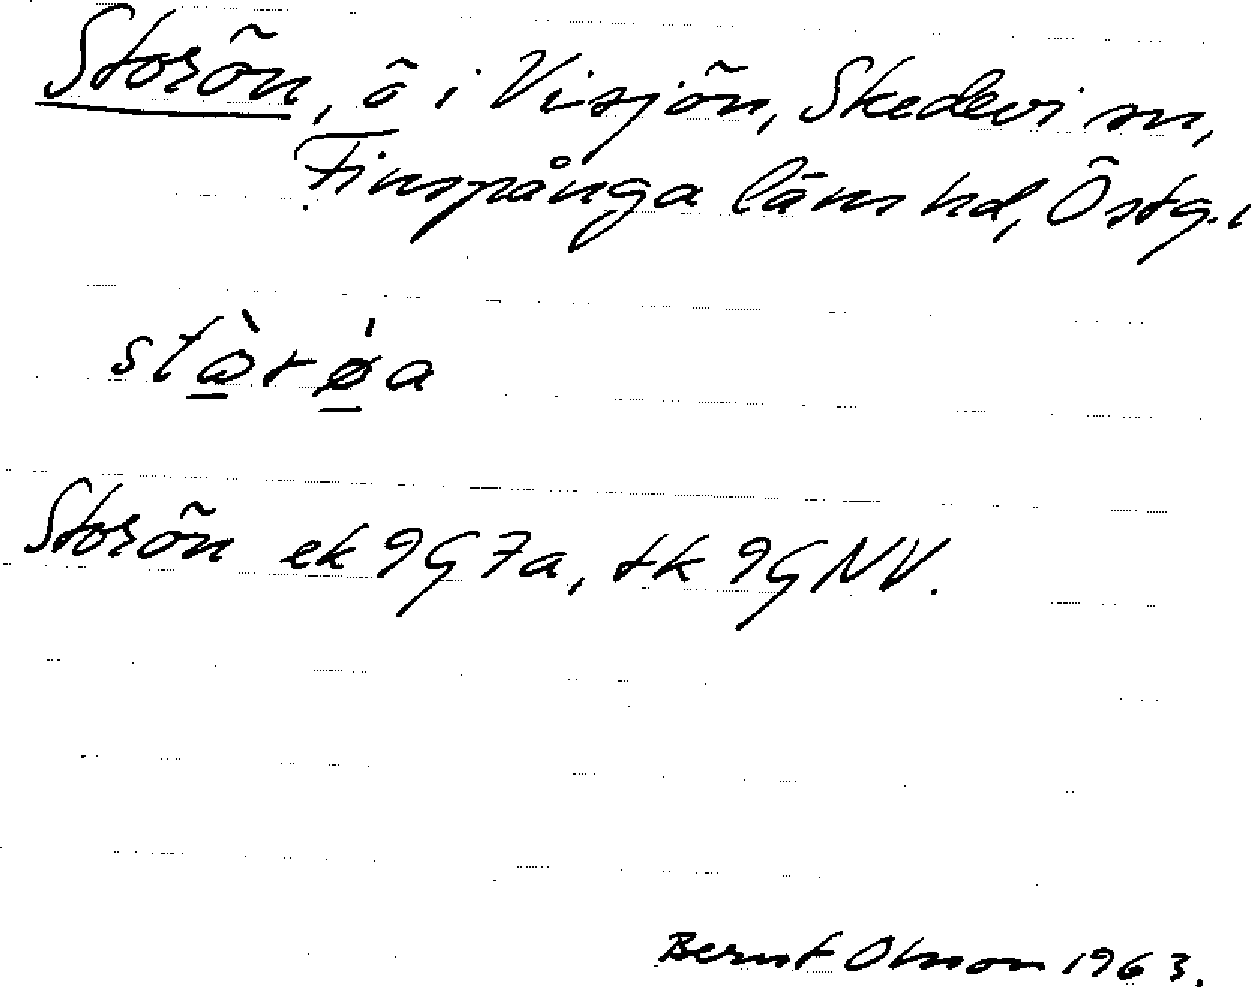 Storön, ö i Visjön, Skedevi sn,
Finspånga läns hd, Östg.
Storön ek 9G7a, tk 9GNV.
Bernt Olsson 1963.